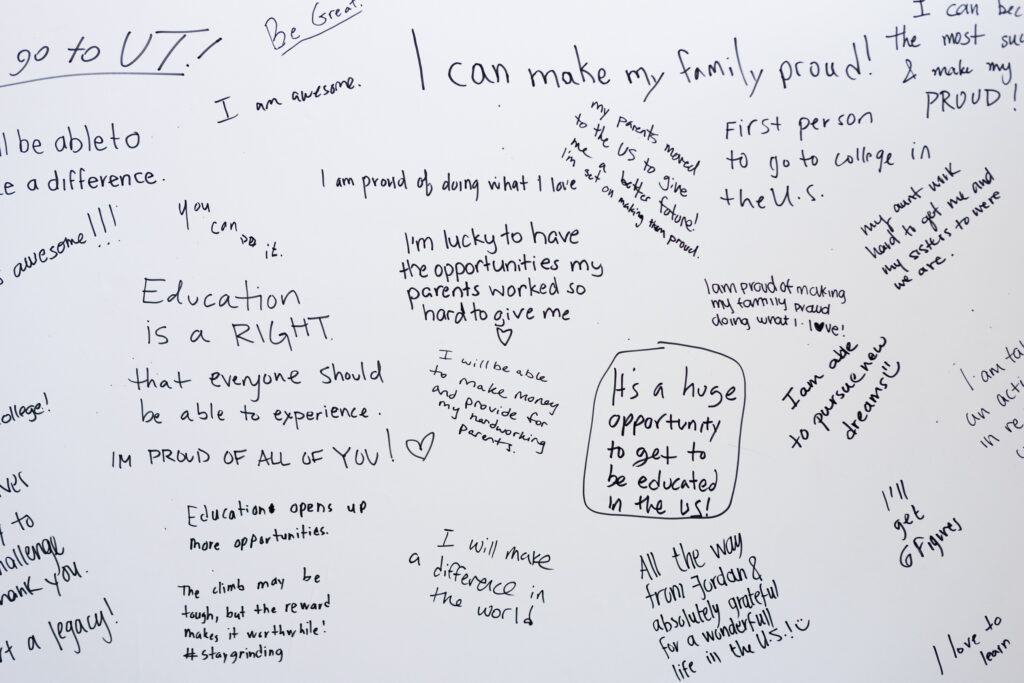 go to UT!
Be Great.
I am awesome.
I can make my family proud!
I can
the most
& make my
PROUD!
be able to
a difference.
my parents moved
to the US to give
me a better future!
I'm set on making them proud.
First person
to go to college in
the U.S.
I am proud of doing what I love
my aunt work
hard to get me and
my sisters to were
we are.
awesome!!!
You
can
it.
I'm lucky to have
the opportunities my
parents worked so
hard to give me
Education
is a RIGHT
that everyone should
be able to experience.
I'M PROUD OF ALL OF YOU!
I am proud of making
my family proud
doing what I love!
I will be able
to make money
and provide for
my hardworking
parents.
It's a huge
opportunity
to get to
be educated
in the US!
I am able
to pursue new
dreams
I am
an
in
college!
to
challenge
thank you.
a legacy!
Education opens up
more opportunities.
The climb may be
tough, but the reward
makes it worthwhile!
#staygrinding
I will make
a difference in
the world
All the way
from Jordan &
absolutely grateful
for a wonderfull
life in the U.S.!
I'll
get
6 Figures
I love to
learn